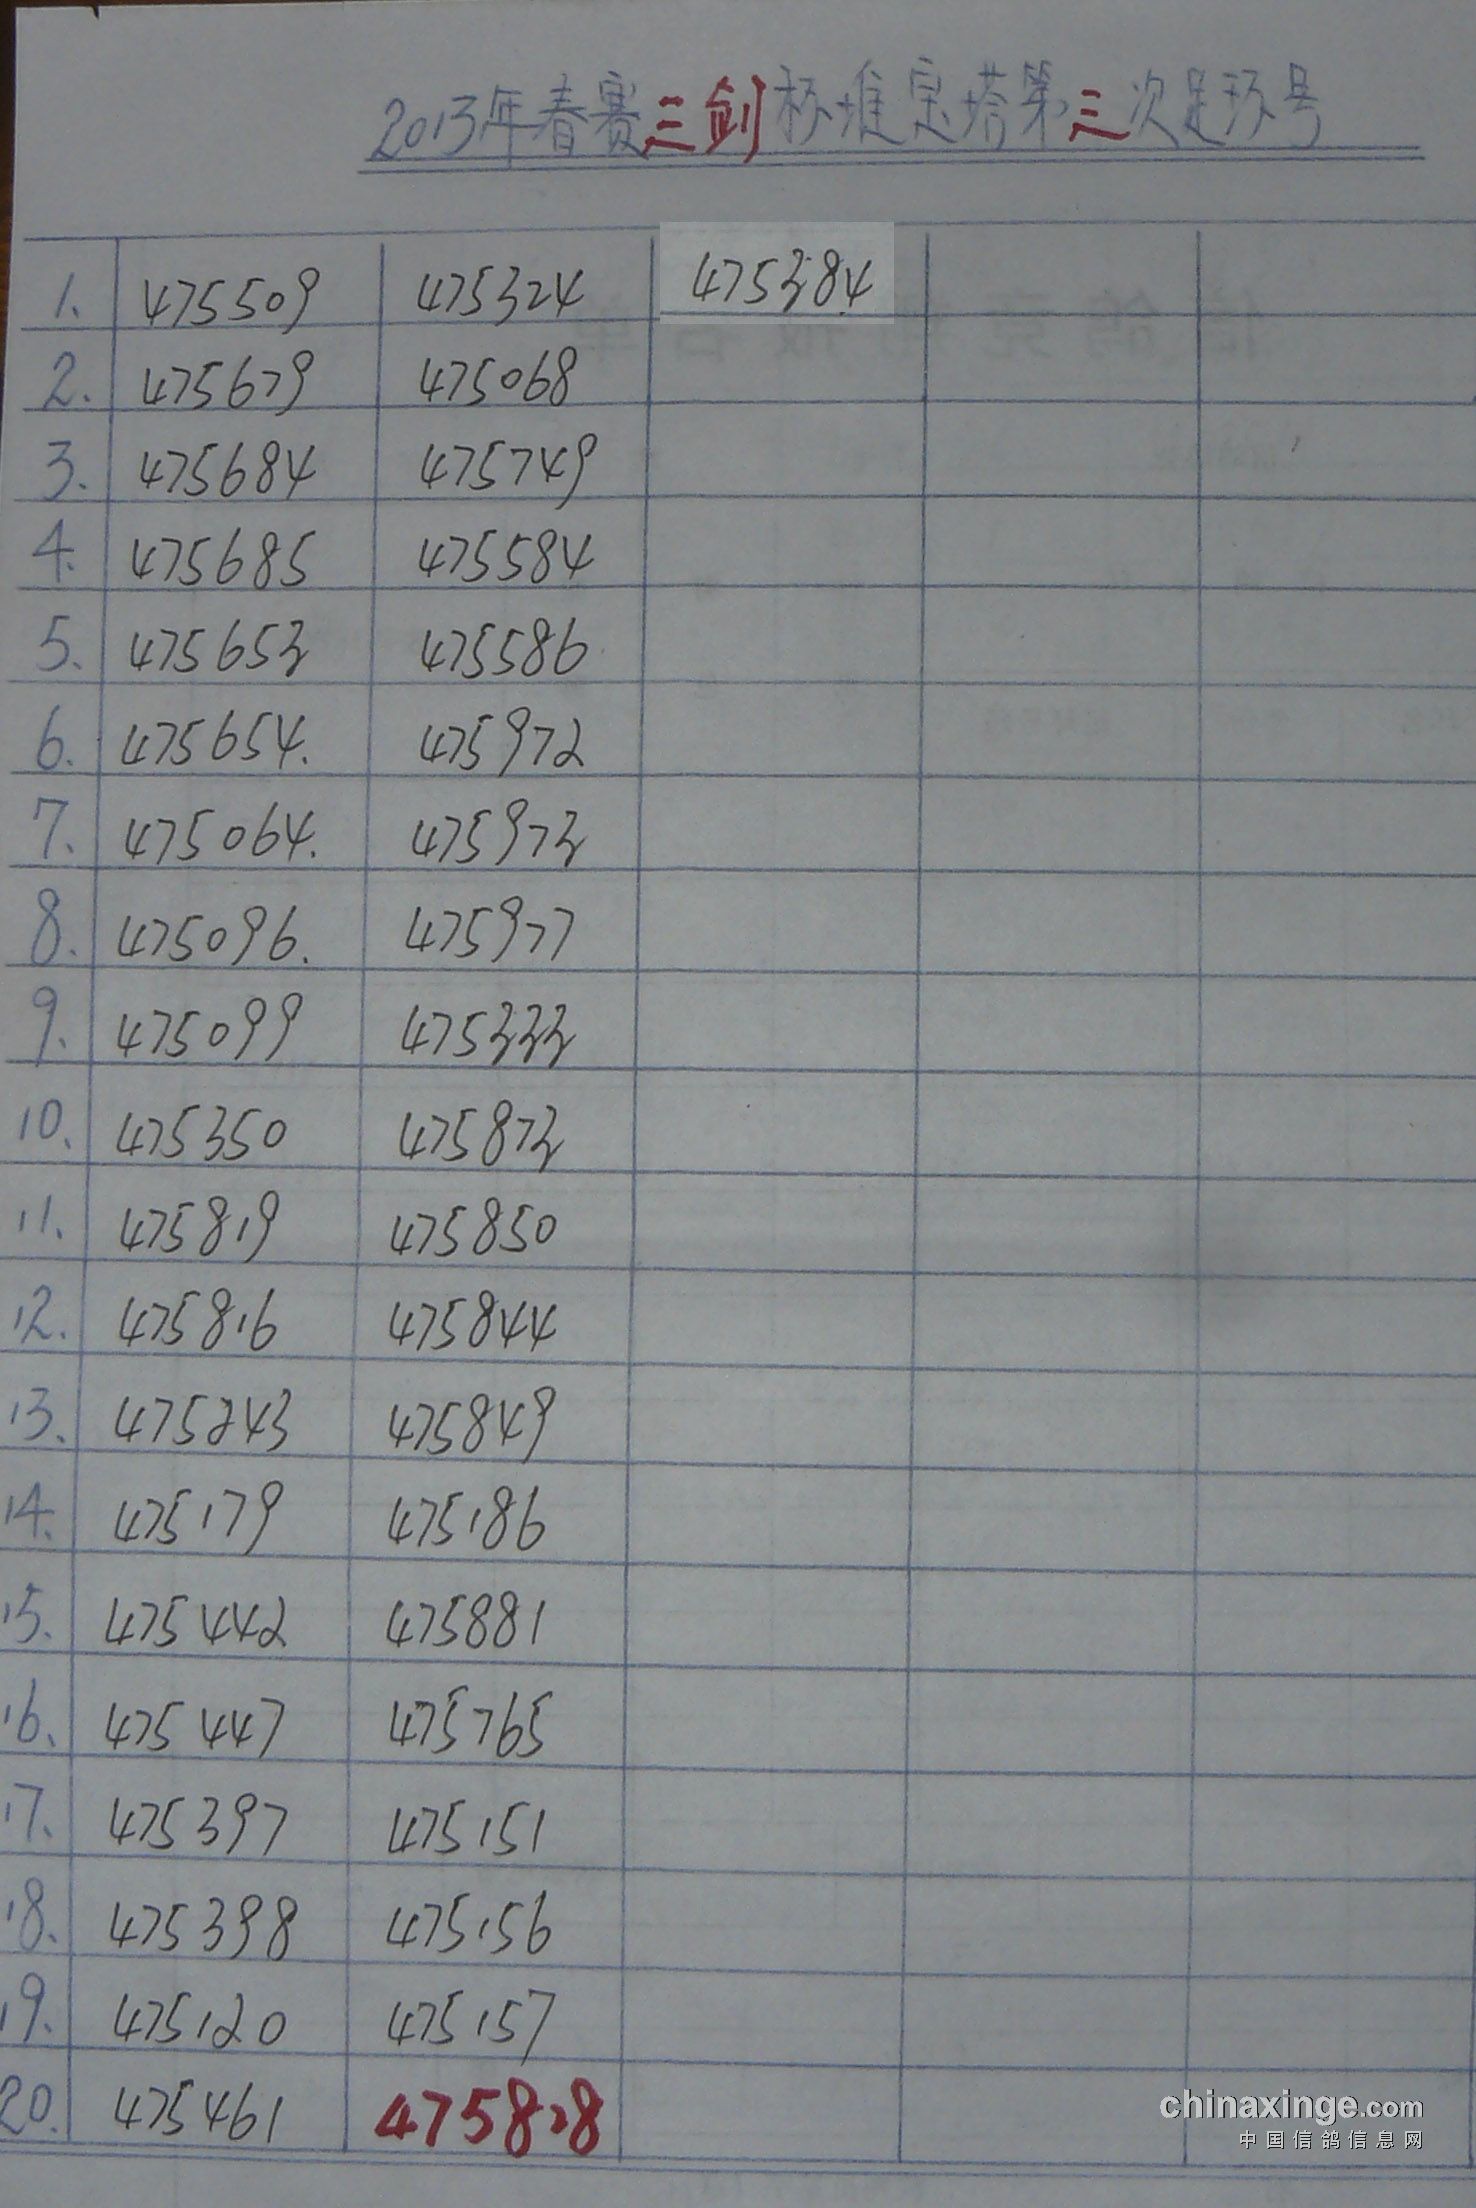 2013年春赛三剑杯堆宝塔第三次足环号
1. 475509 475324 475384
2. 475679 475068
3. 475684 475749
4. 475685 475584
5. 475653 475586
6. 475654. 475972
7. 475064. 475973
8. 475096. 475977
9. 475099 475333
10. 475350 475873
11. 475819 475850
12. 475816 475844
13. 475243 475849
14. 475179 475186
15. 475442 475881
16. 475447 475765
17. 475397 475151
18. 475398 475156
19. 475120 475157
20. 475461 475828
chinaxinge.com
中国信鸽信息网